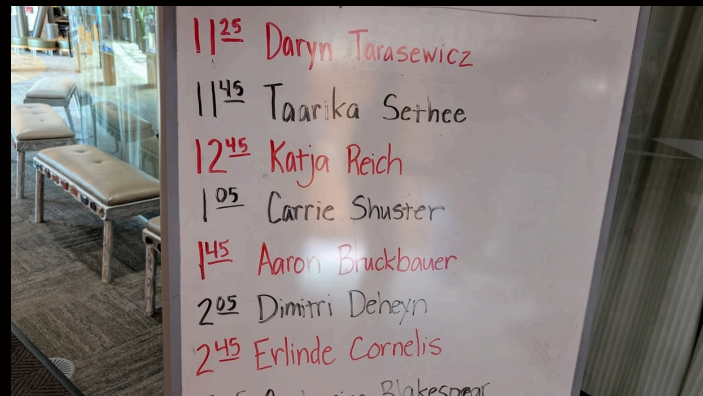 11 25 Daryn Tarasewicz
11 45 Taarika Sethee
12 45 Katja Reich
1 05 Carrie Shuster
1 45 Aaron Bruckbauer
2 05 Dimitri Deheyn
2 45 Erlinde Cornelis
Blakespear